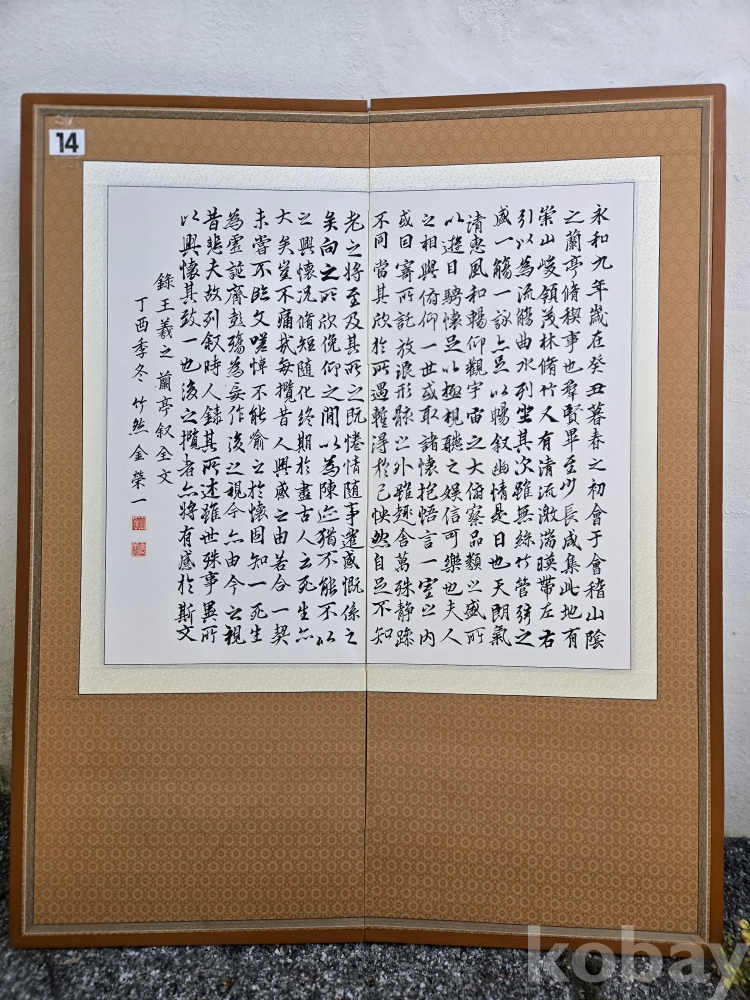 14
永和九年歲在癸丑暮春之初會于會稽山陰
之蘭亭脩稧事也羣賢畢至少長咸集此地有
崇山峻領茂林脩竹又有清流激湍暎帶左右
引以為流觴曲水列坐其次雖無絲竹管弦之
盛一觴一詠亦足以暢叙幽情是日也天朗氣
清惠風和暢仰觀宇宙之大俯察品類之盛所
以遊目騁懷足以極視聽之娛信可樂也夫人
之相與俯仰一世或取諸懷抱悟言一室之内
或因寄所託放浪形骸之外雖趣舍萬殊静躁
不同當其欣於所遇蹔得於己怏然自足不知
老之將至及其所之既惓情隨事遷感慨係之
矣向之所欣俛仰之間以為陳迹猶不能不以
之興懷況脩短隨化終期於盡古人云死生亦
大矣豈不痛哉每攬昔人興感之由若合一契
未嘗不臨文嗟悼不能喻之於懷固知一死生
為虛誕齊彭殤為妄作後之視今亦由今之視
昔悲夫故列叙時人錄其所述雖世殊事異所
以興懷其致一也後之攬者亦將有感於斯文
錄王羲之 蘭亭叙全文
丁酉季冬 竹然 金榮一
kobay